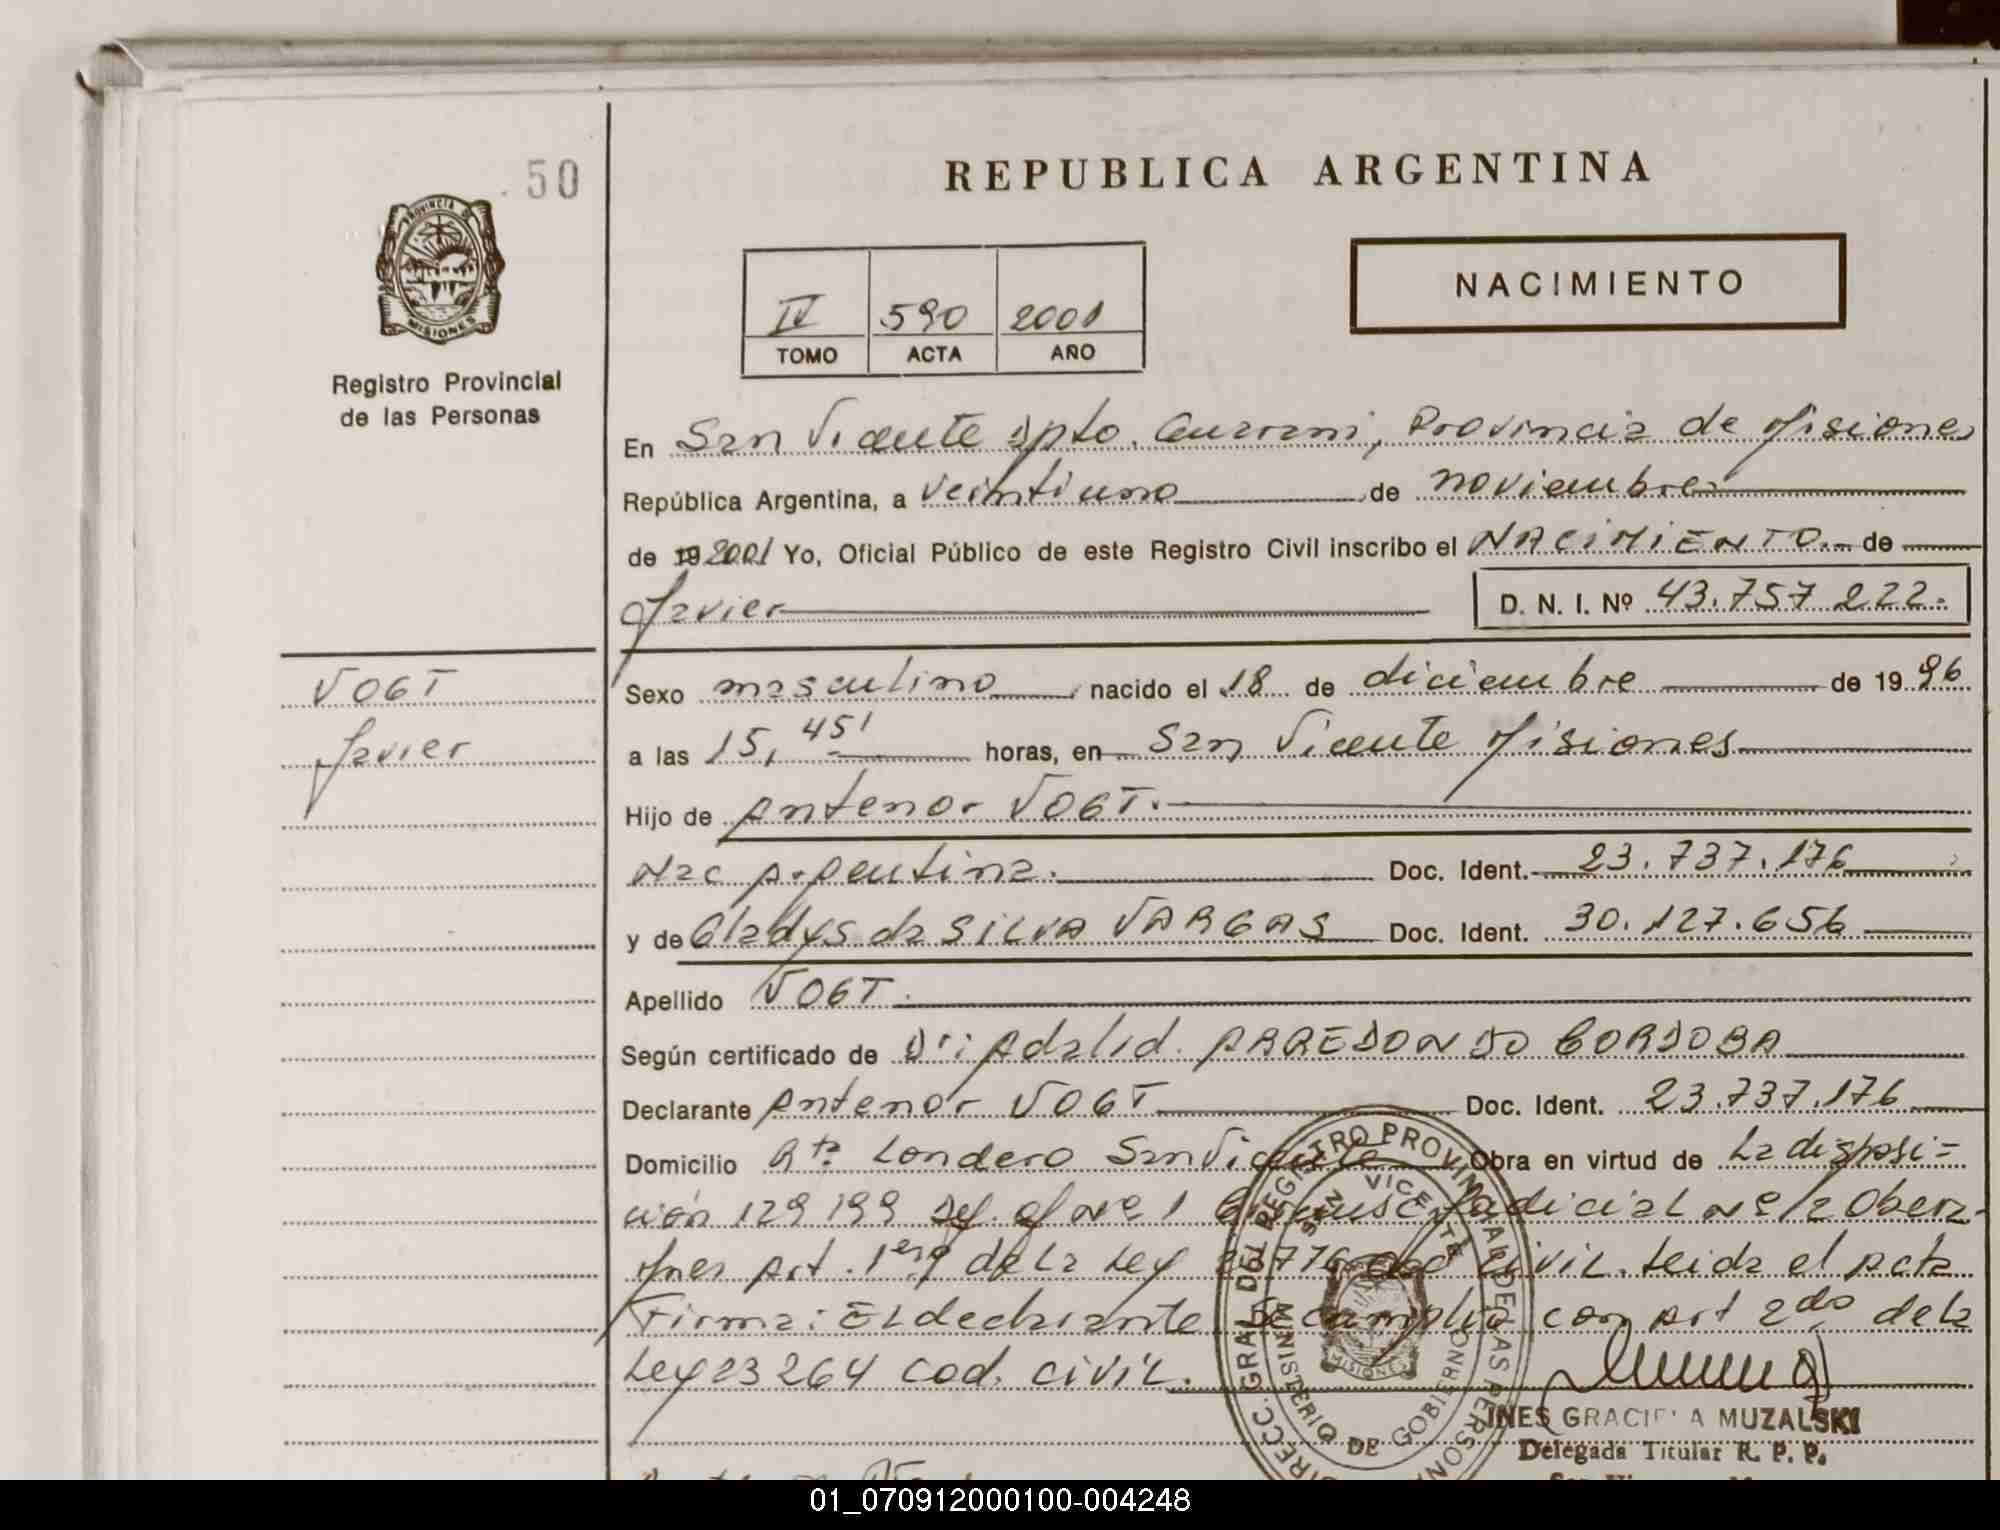 50
PROVINCIA DE
MISIONES
Registro Provincial
de las Personas
VOGT
Javier
REPUBLICA ARGENTINA
NACIMIENTO
IV 590 2001
TOMO ACTA AÑO
En San Vicente Dpto. Guarani, Provincia de Misiones
República Argentina, a veintiuno de noviembre
de 19 2001 Yo, Oficial Público de este Registro Civil inscribo el NACIMIENTO.- de
Javier
D. N. I. Nº 43.757 222.-
Sexo masculino, nacido el 18 de diciembre de 19 96
a las 15, 45' horas, en San Vicente Misiones
Hijo de Antenor VOGT.
Nac Argentina. Doc. Ident. 23.737.176
y de Gladys da SILVA VARGAS Doc. Ident. 30.127.656
Apellido VOGT.
Según certificado de Dr: Adalid. ARREDONDO CORDOBA
Declarante Antenor VOGT Doc. Ident. 23.737.176
Domicilio Rta Londero San Vicente Obra en virtud de La disposi=
ción 129 199 Def. of Nº 1 Circunsc. Judicial Nº 2 Obera-
Mnes Art. 1º de La Ley cod civil. Leida el Acta
Firma: El declarante Se cumplio con Art 2do de La
Ley 23264 cod. civil.
DIRECC. GRAL DEL REGISTRO PROVINCIAL DE LAS PERSONAS
SAN VICENTE
MINISTERIO DE GOBIERNO
MISIONES
INES GRACIELA MUZALSKI
Delegada Titular R. P. P.
01_070912000100-004248